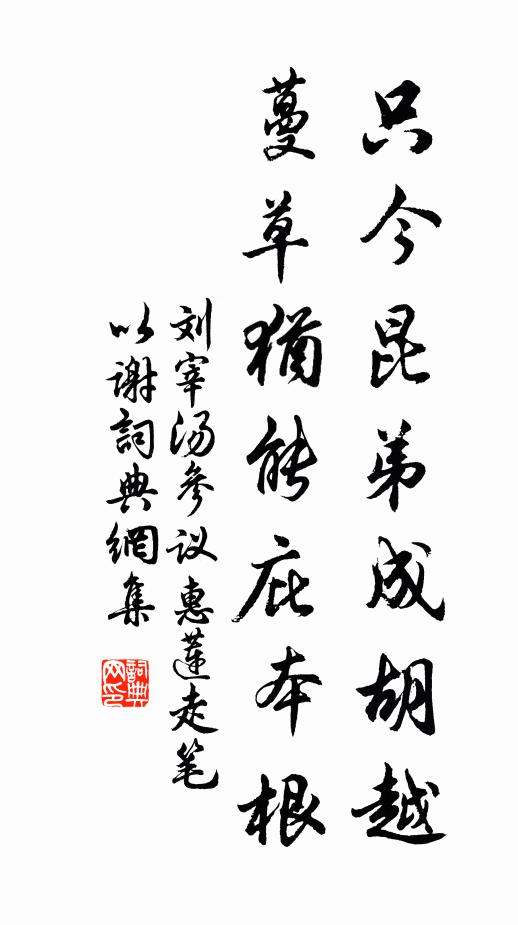 只今昆弟成胡越
蔓草猶能庇本根
刘宰汤参议惠莲走笔
以谢詞典網集
詞典网印